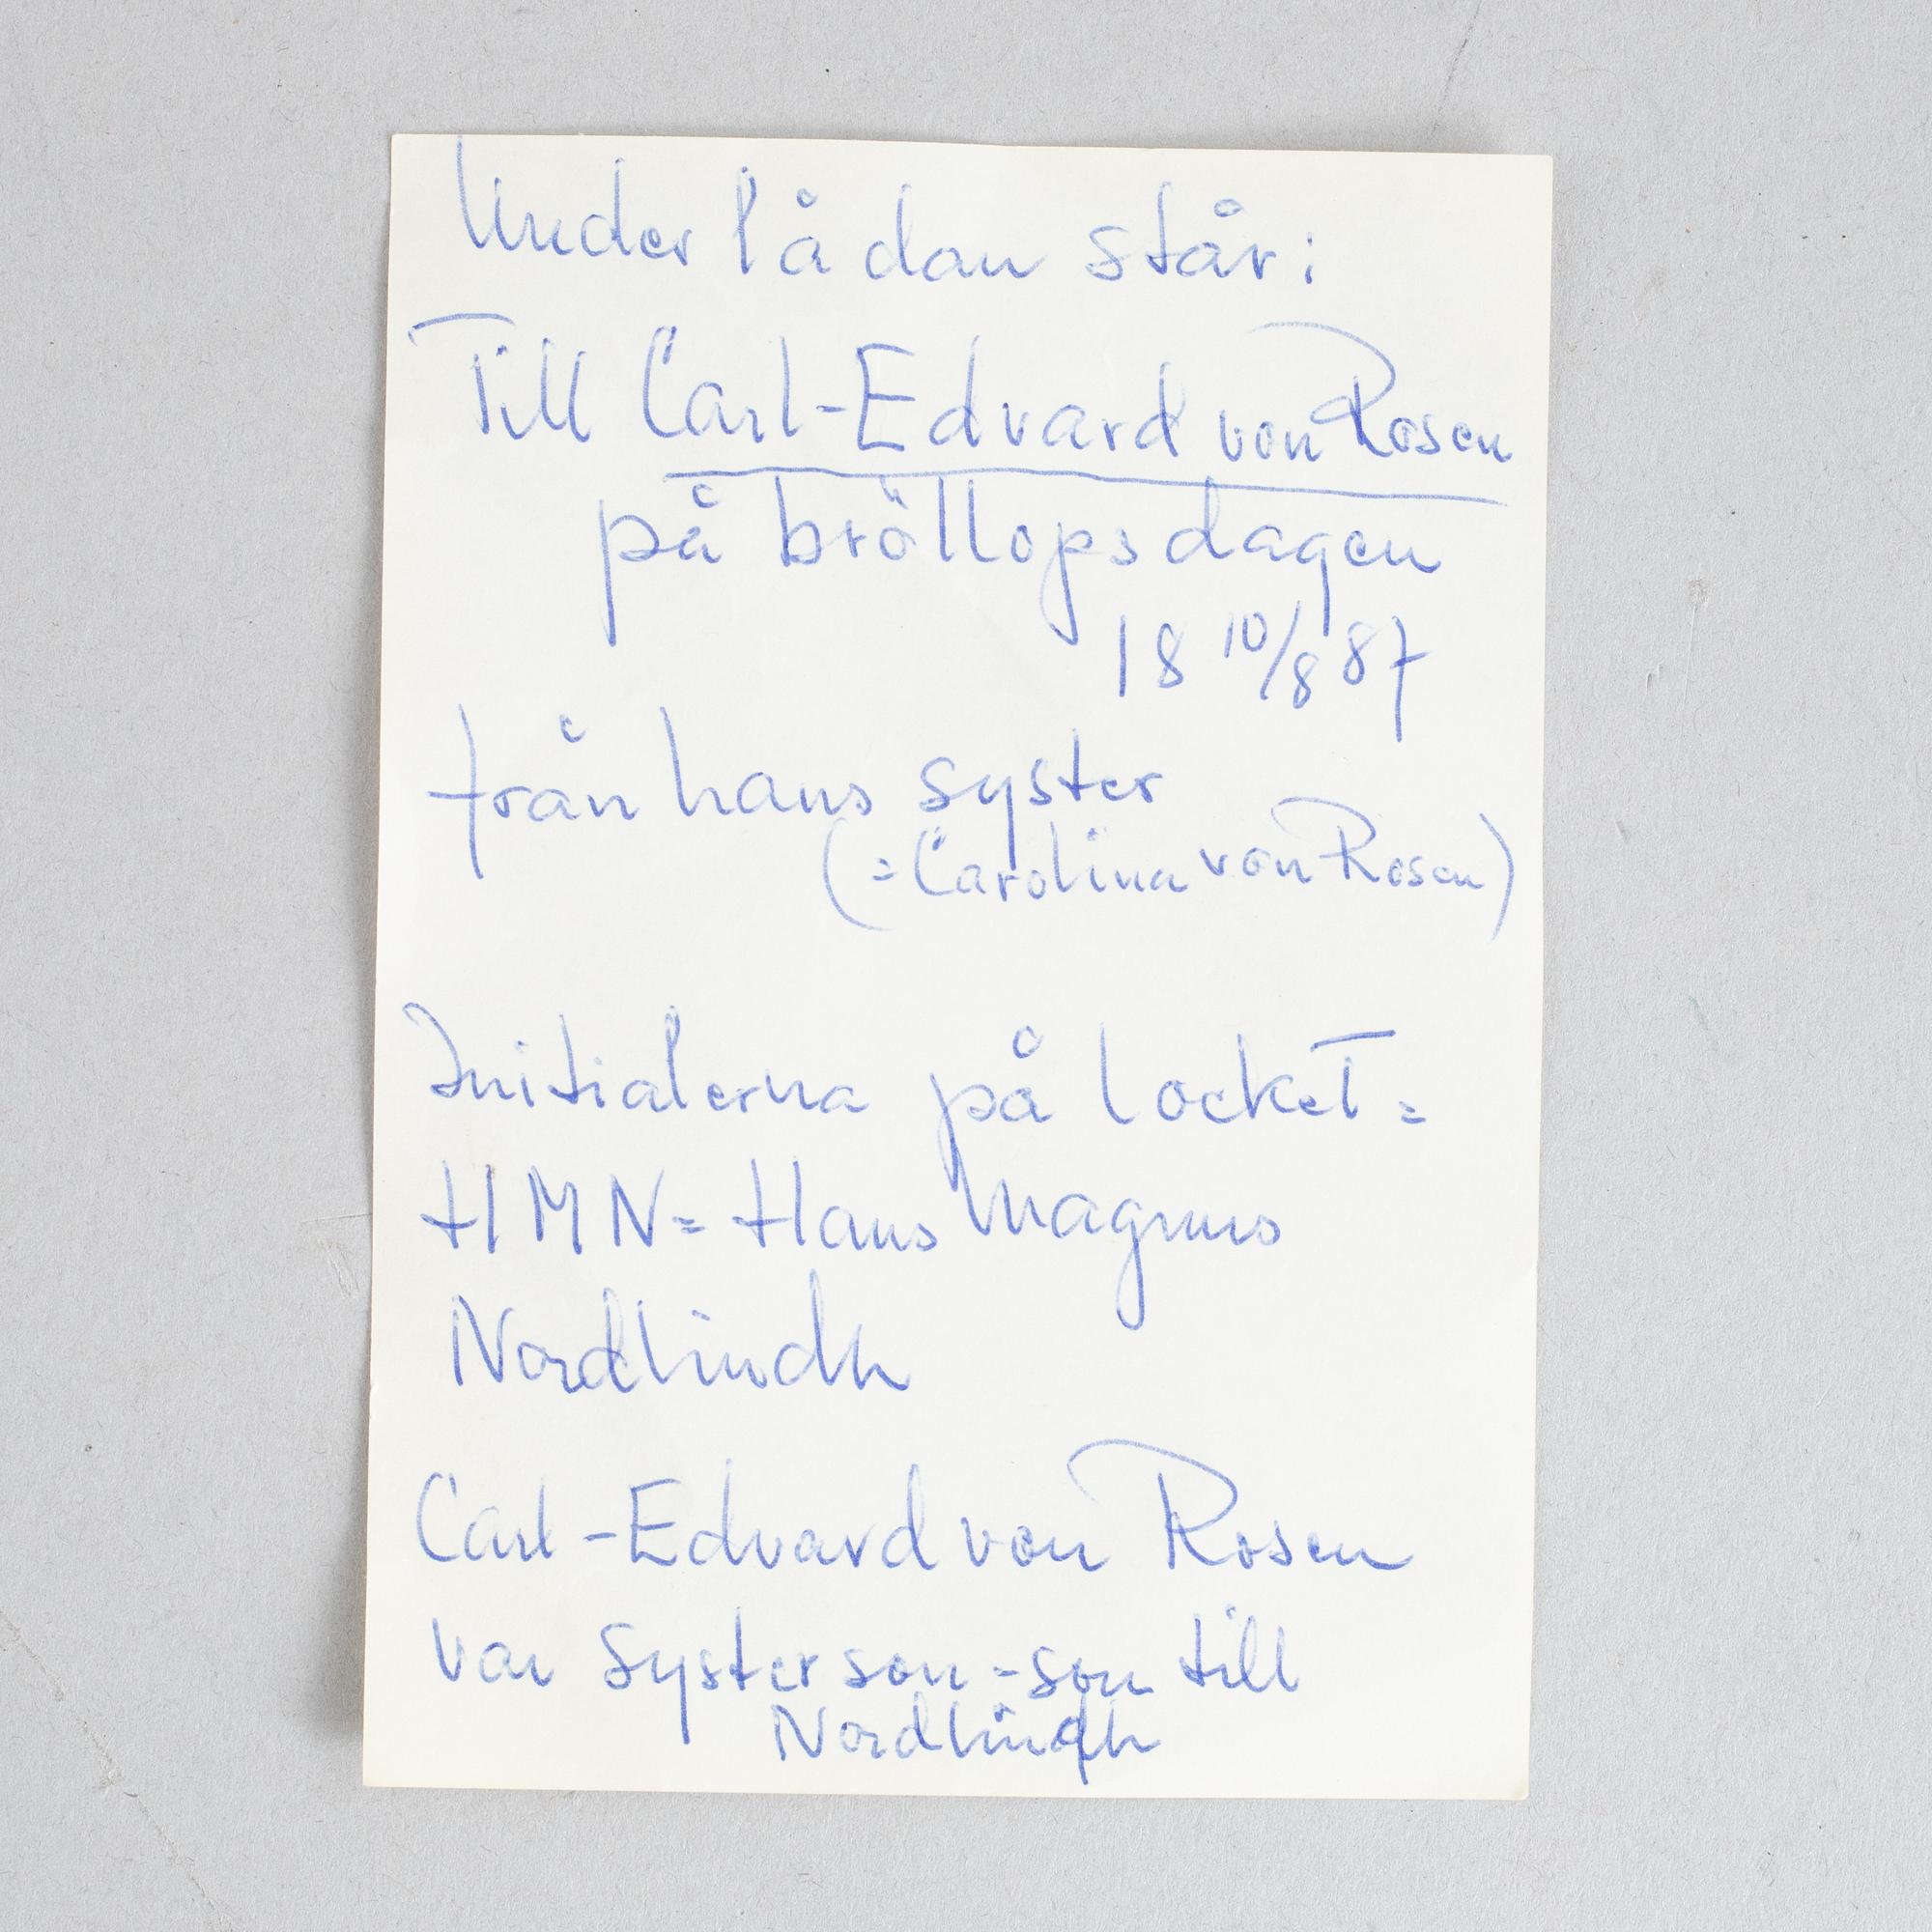 Under lådan står:
Till Carl-Edvard von Rosen
på bröllopsdagen
18 10/8 87
från hans syster
(=Carolina von Rosen)
Initialerna på locket =
HMN = Hans Magnus
Nordlindh
Carl-Edvard von Rosen
var systerson-son till
Nordlindh